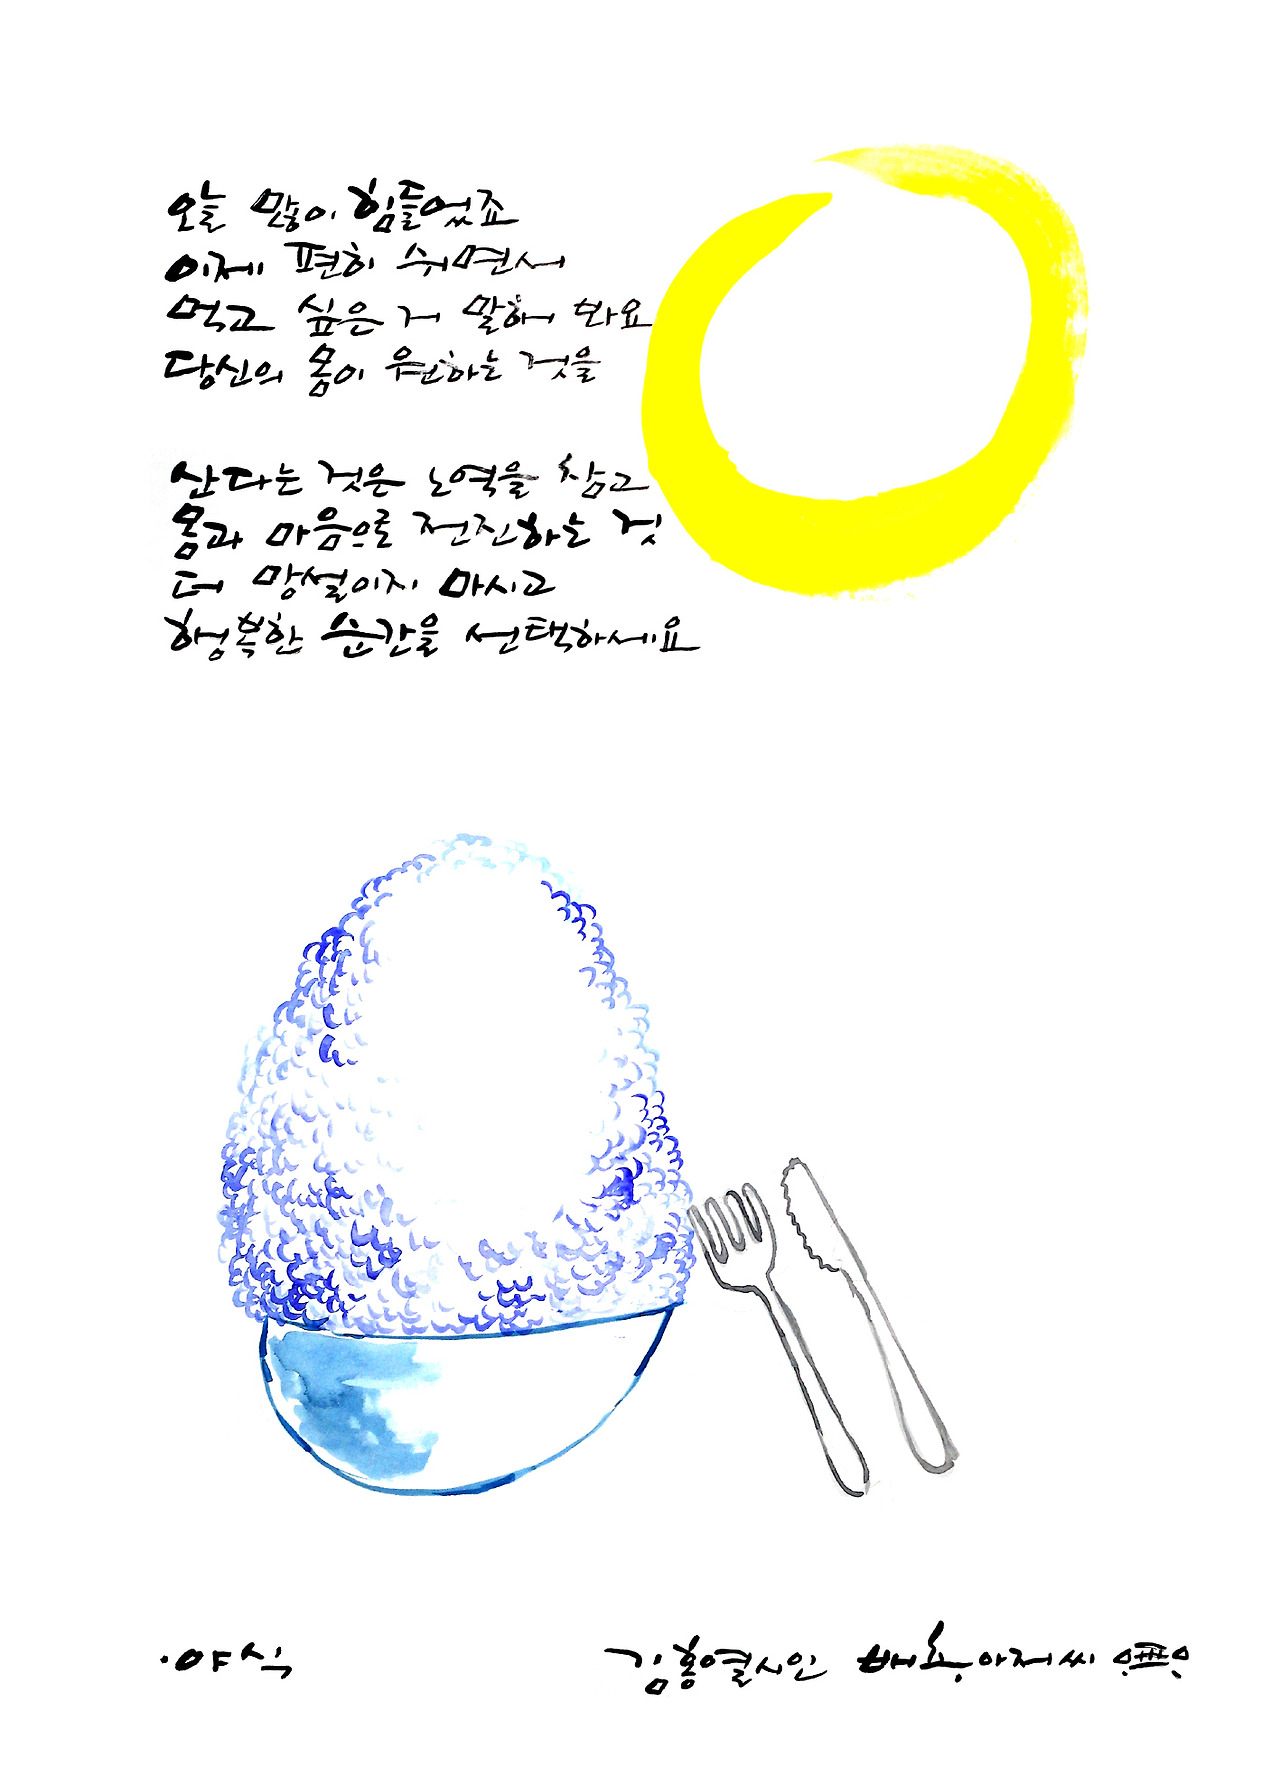 오늘 많이 힘들었죠
이제 편히 쉬면서
먹고 싶은 거 말해 봐요
당신의 몸이 원하는 것을
산다는 것은 노역을 참고
몸과 마음으로 전진하는 것
더 망설이지 마시고
행복한 순간을 선택하세요
·야식
김홍열시인 아재씨